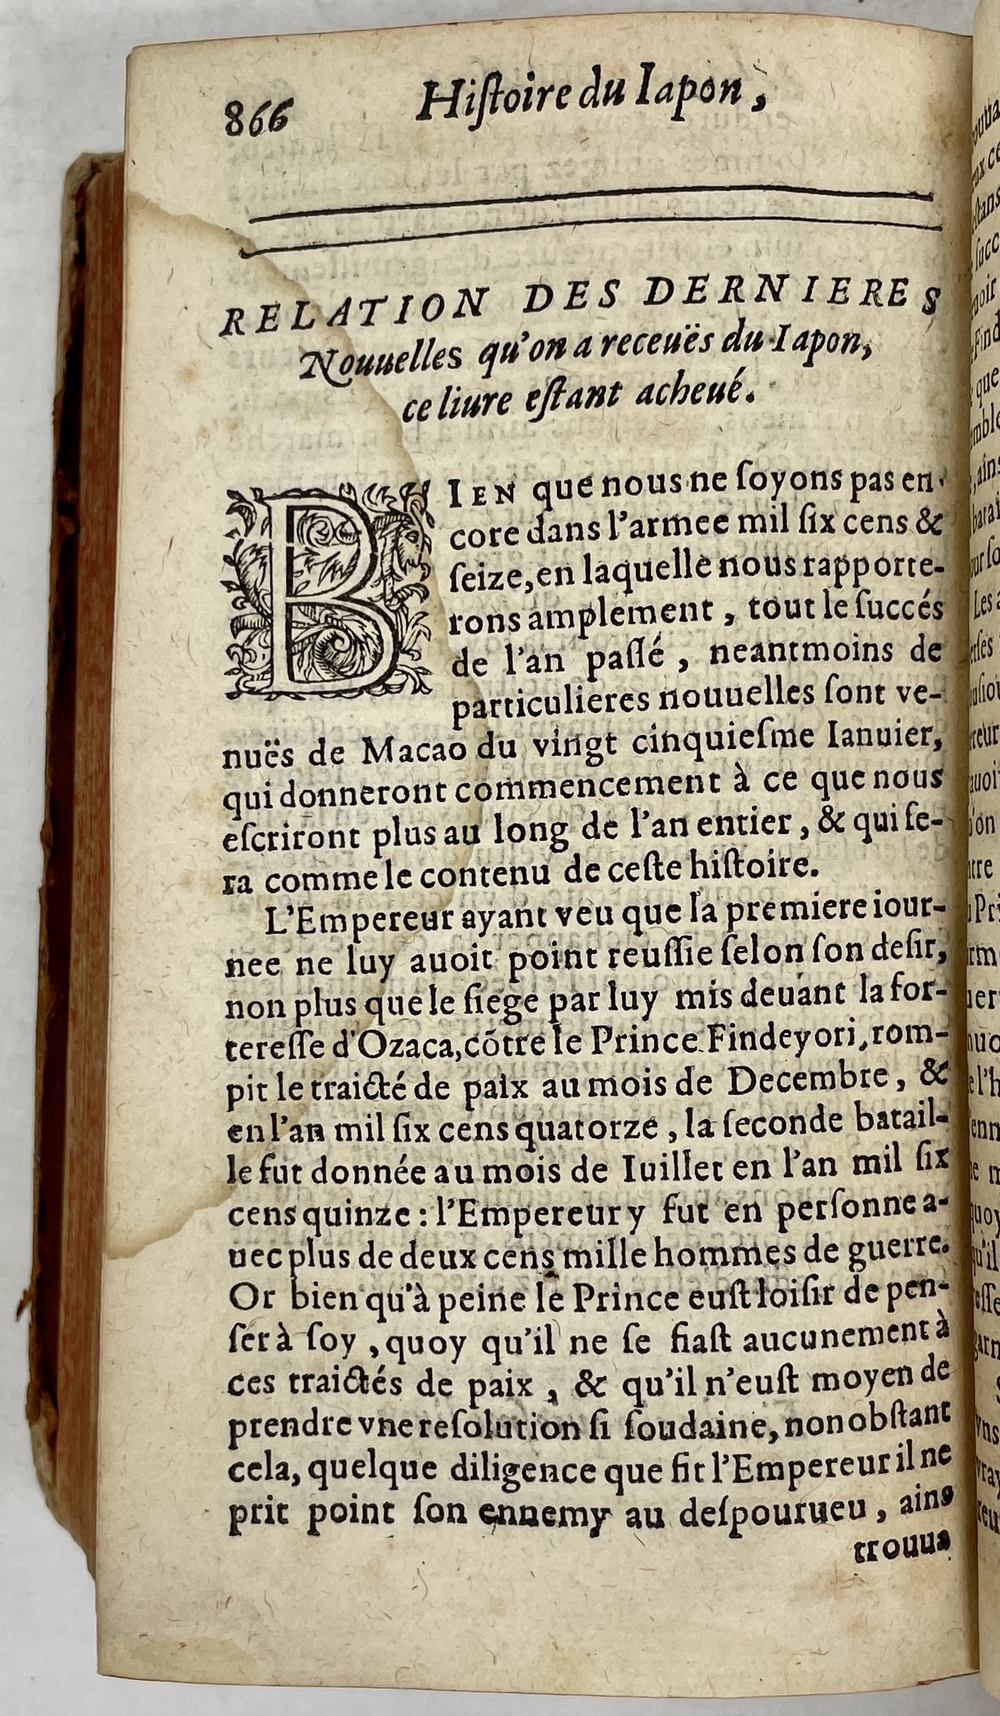 866 Hiſtoire du Iapon,
RELATION DES DERNIERES
Nouuelles qu'on a receuës du Iapon,
ce liure eſtant acheué.
BIEN que nous ne ſoyons pas en-
core dans l'armee mil ſix cens &
ſeize, en laquelle nous rapporte-
rons amplement, tout le ſuccés
de l'an paſſé, neantmoins de
particulieres nouuelles ſont ve-
nuës de Macao du vingt cinquieſme Ianuier,
qui donneront commencement à ce que nous
eſcriront plus au long de l'an entier, & qui ſe-
ra comme le contenu de ceſte hiſtoire.
L'Empereur ayant veu que la premiere iour-
nee ne luy auoit point reuſſie ſelon ſon deſir,
non plus que le ſiege par luy mis deuant la for-
tereſſe d'Ozaca, cõtre le Prince Findeyori, rom-
pit le traicté de paix au mois de Decembre, &
en l'an mil ſix cens quatorze, la ſeconde batail-
le fut donnée au mois de Iuillet en l'an mil ſix
cens quinze: l'Empereur y fut en perſonne a-
uec plus de deux cens mille hommes de guerre.
Or bien qu'à peine le Prince euſt loiſir de pen-
ſer à ſoy, quoy qu'il ne ſe fiaſt aucunement à
ces traictés de paix, & qu'il n'euſt moyen de
prendre vne reſolution ſi ſoudaine, nonobſtant
cela, quelque diligence que fit l'Empereur il ne
prit point ſon ennemy au deſpourueu, ains
trouua